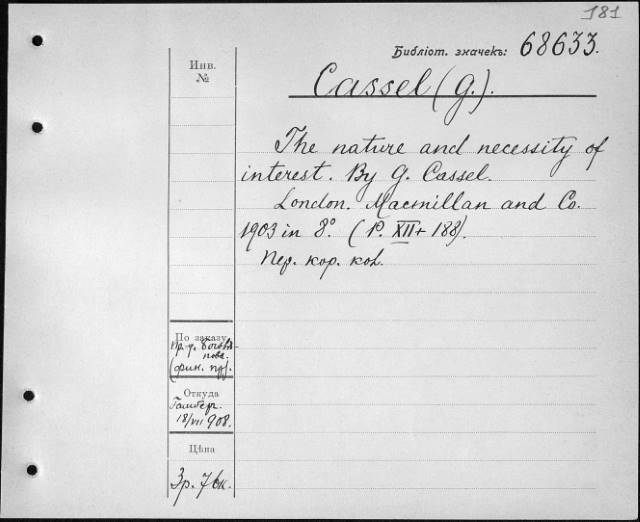 181
Библіот. значекъ: 68633.
Инв.
№
Cassel (G.).
The nature and necessity of
interest. By G. Cassel.
London. Macmillan and Co.
1903 in 8°. (P. XII + 188).
Пер. кор. кол.
По заказу
пр. у.
(фин. пр).
Откуда
Гамбер.
18/VII 908.
Цѣна
3р. 76к.